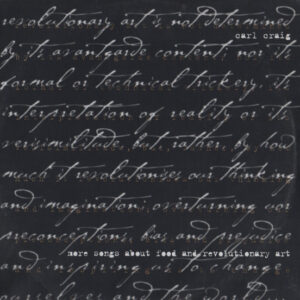 revolutionary art is not determined
carl craig
by its avantgarde content nor its
formal or technical trickery. its
interpretation of reality or its
verisimilitude, but, rather, by how
much it revolutionises our thinking
and imagination; overturning our
preconceptions, bias and prejudice
more songs about food and revolutionary art
and inspiring us to change
ourselves and the